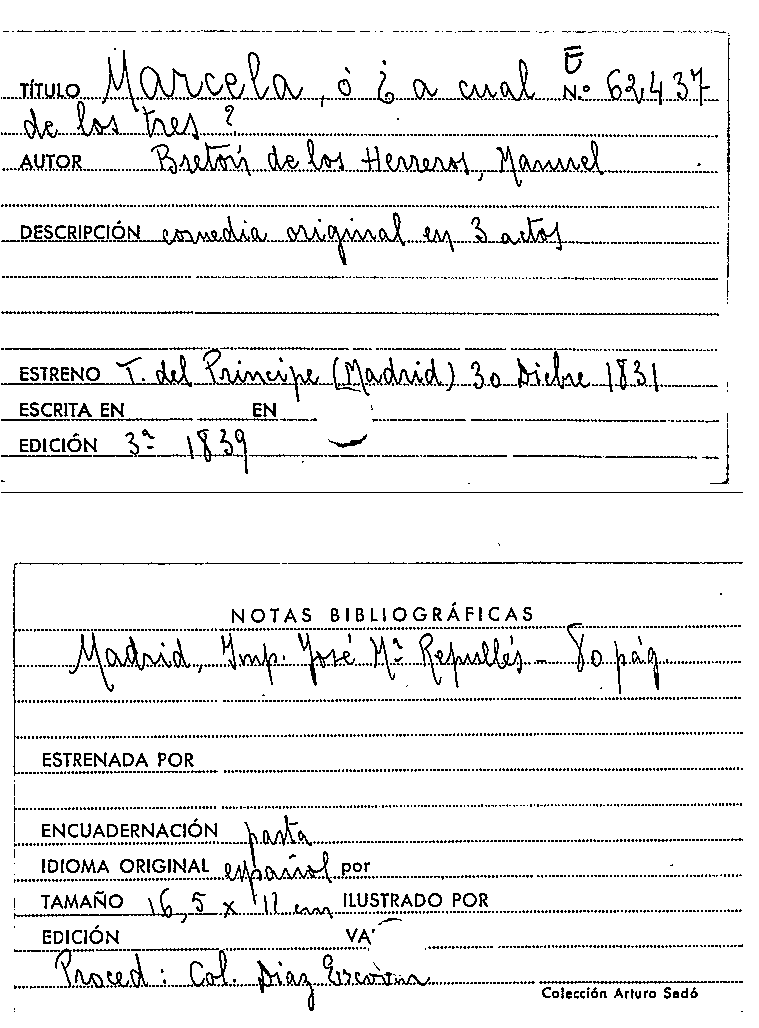 E
TÍTULO Marcela, ó ¿ a cual N.º 62437
de los tres ?
AUTOR Bretón de los Herreros, Manuel
DESCRIPCIÓN comedia original en 3 actos
ESTRENO T. del Principe (Madrid) 30 Dicbre 1831
ESCRITA EN EN
EDICIÓN 3ª 1839
NOTAS BIBLIOGRÁFICAS
Madrid, Imp. José Mª Repullés - 80 pág.
ESTRENADA POR
ENCUADERNACIÓN pasta
IDIOMA ORIGINAL español por
TAMAÑO 16,5 x 11 cm ILUSTRADO POR
EDICIÓN VA
Proced: Col. Diaz
Colección Arturo Sedó